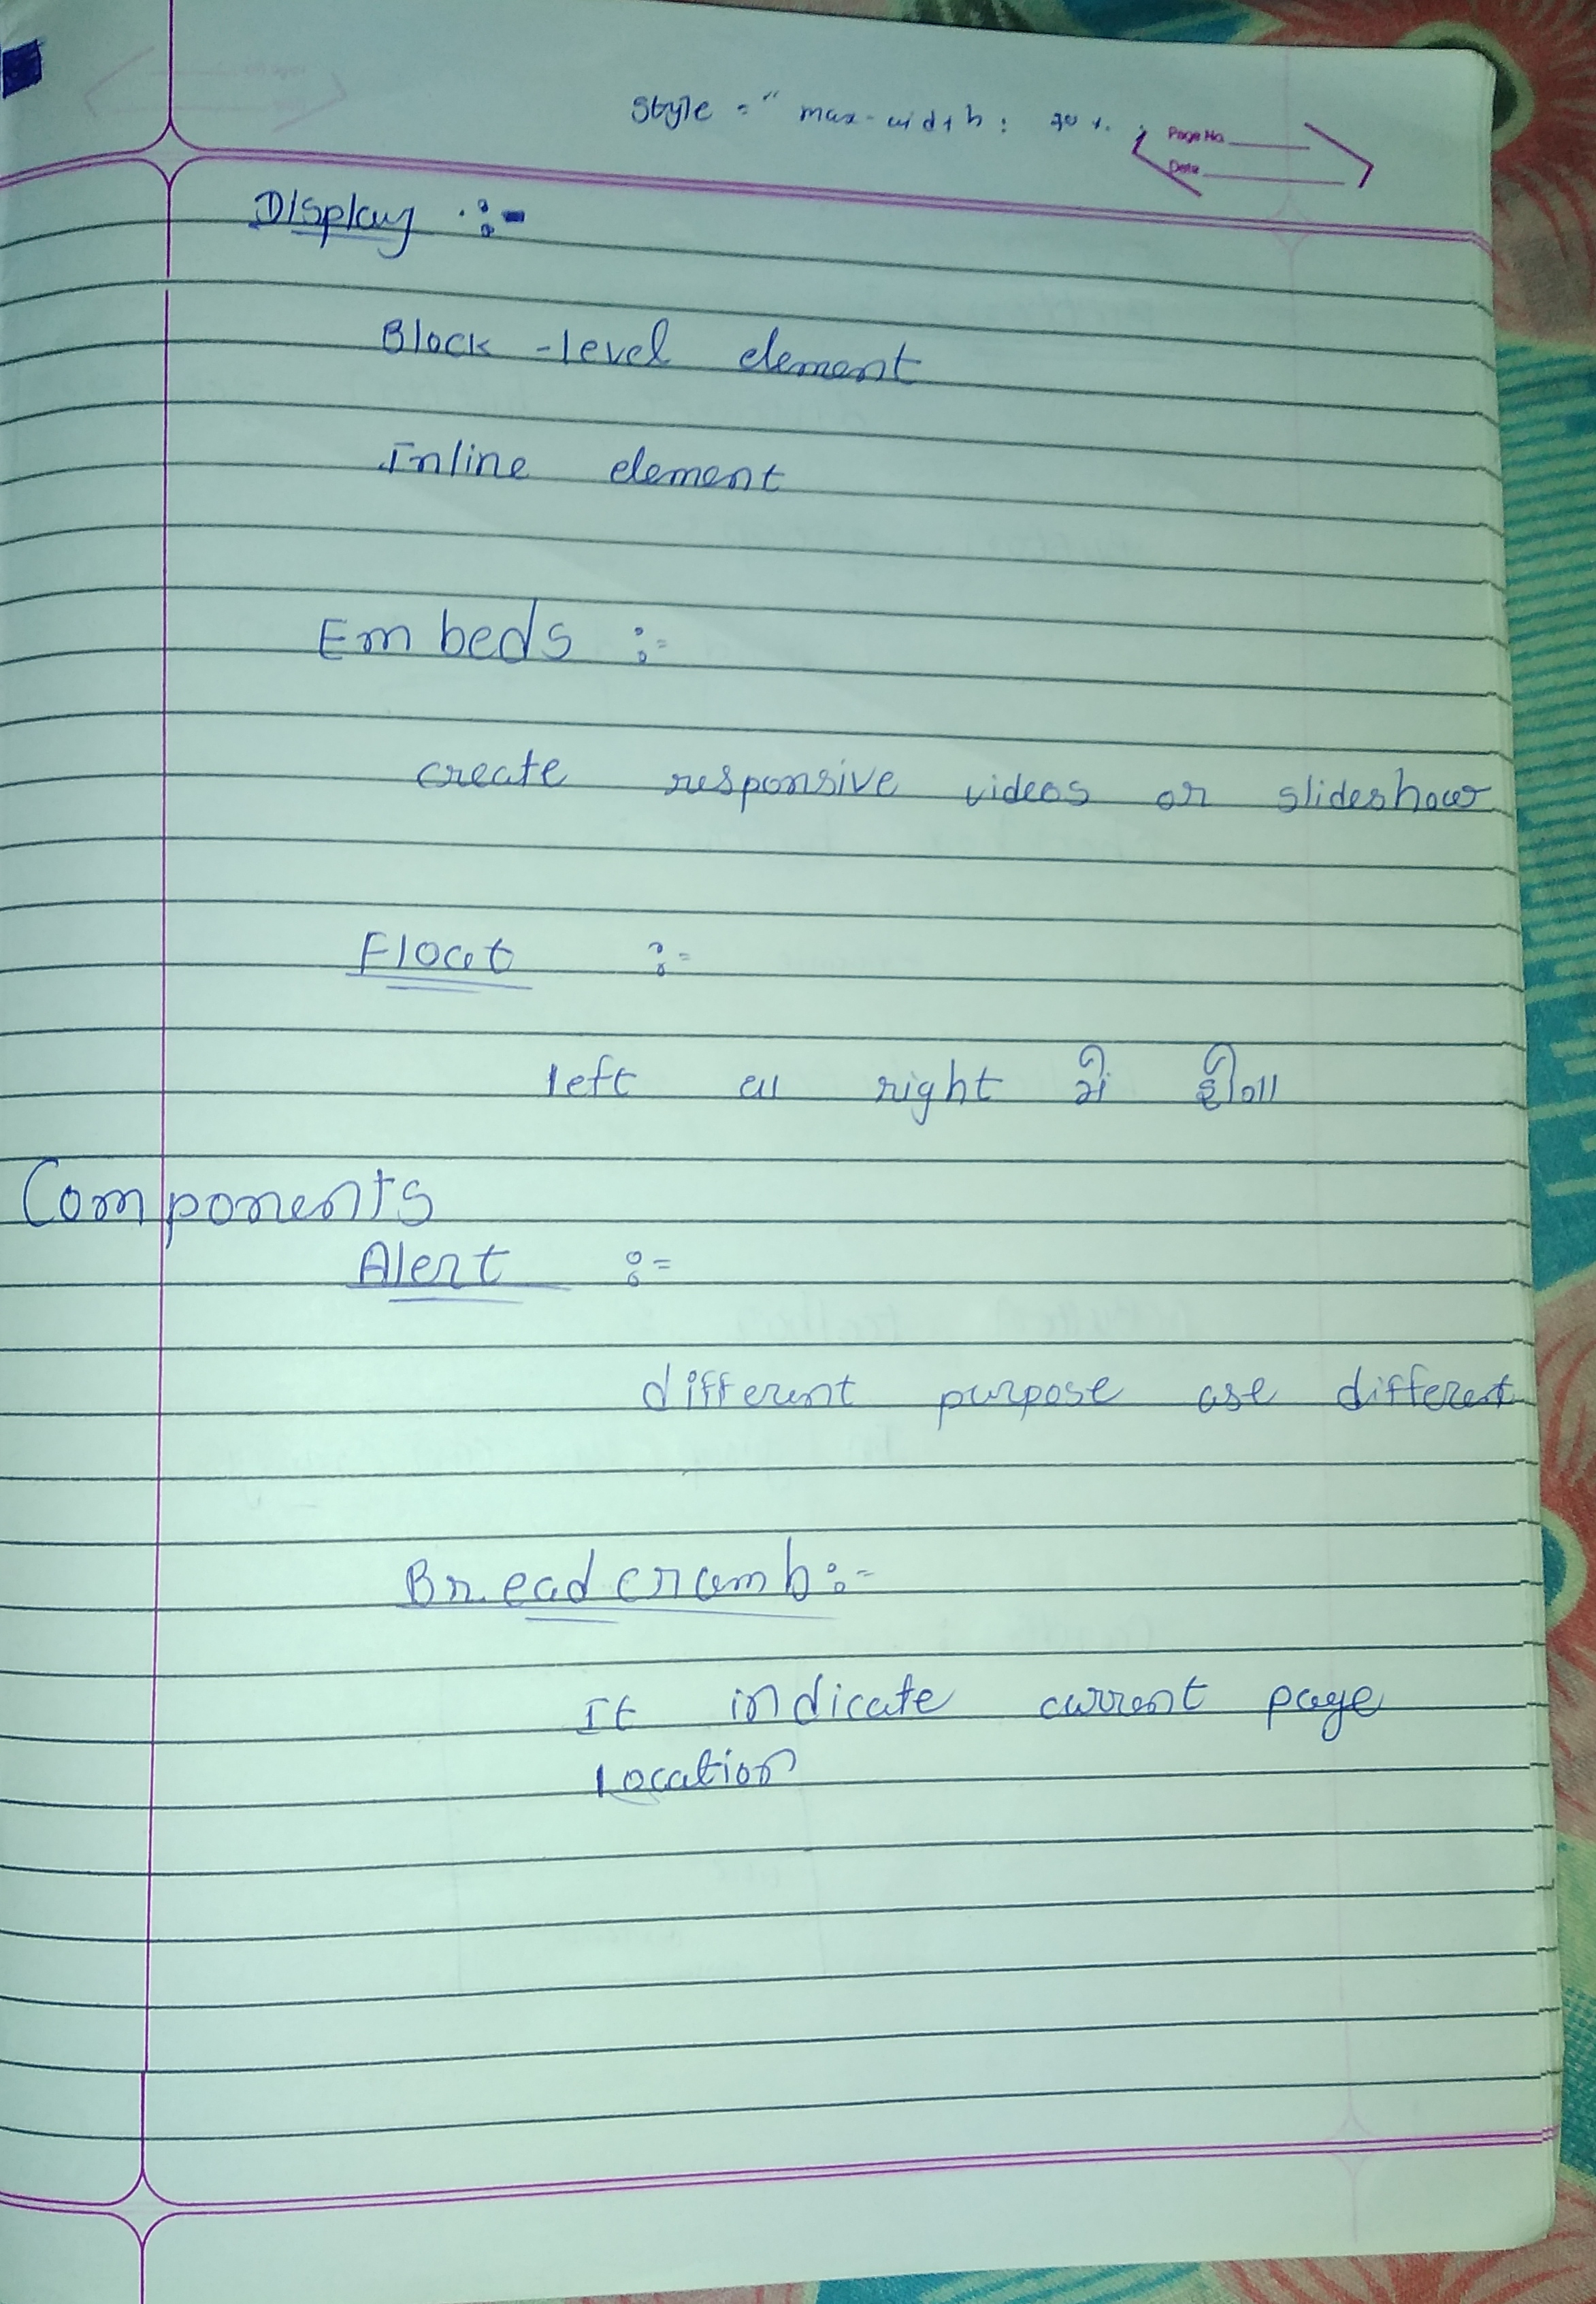 Style = " max-width: 70%.
Page No.
Date
Display :-
Block -level element
Inline element
Embeds :-
create responsive videos or slideshow
Float :-
left या right में होगा
Components
Alert :-
different purpose use different
Breadcrumb :-
It indicate current page
location